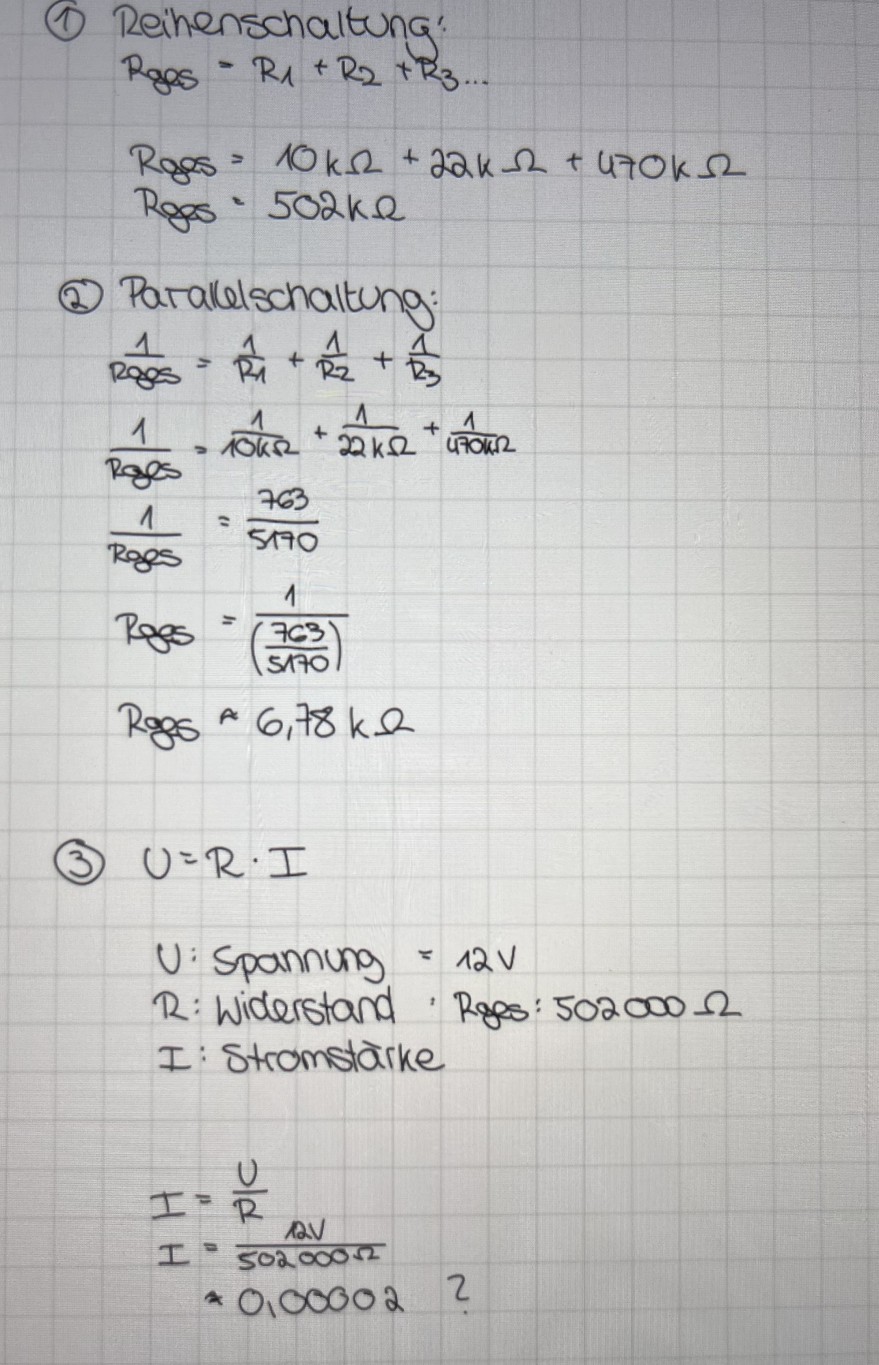 ① Reihenschaltung:
Rges = R1 + R2 + R3...
Rges = 10kΩ + 22kΩ + 470kΩ
Rges = 502kΩ
② Parallelschaltung:
1/Rges = 1/R1 + 1/R2 + 1/R3
1/Rges = 1/10kΩ + 1/22kΩ + 1/470kΩ
1/Rges = 763/5170
Rges = 1/(763/5170)
Rges ≈ 6,78 kΩ
③ U = R · I
U: Spannung = 12V
R: Widerstand : Rges: 502000 Ω
I: Stromstärke
I = U/R
I = 12V/502000Ω
≈ 0,00002 ?